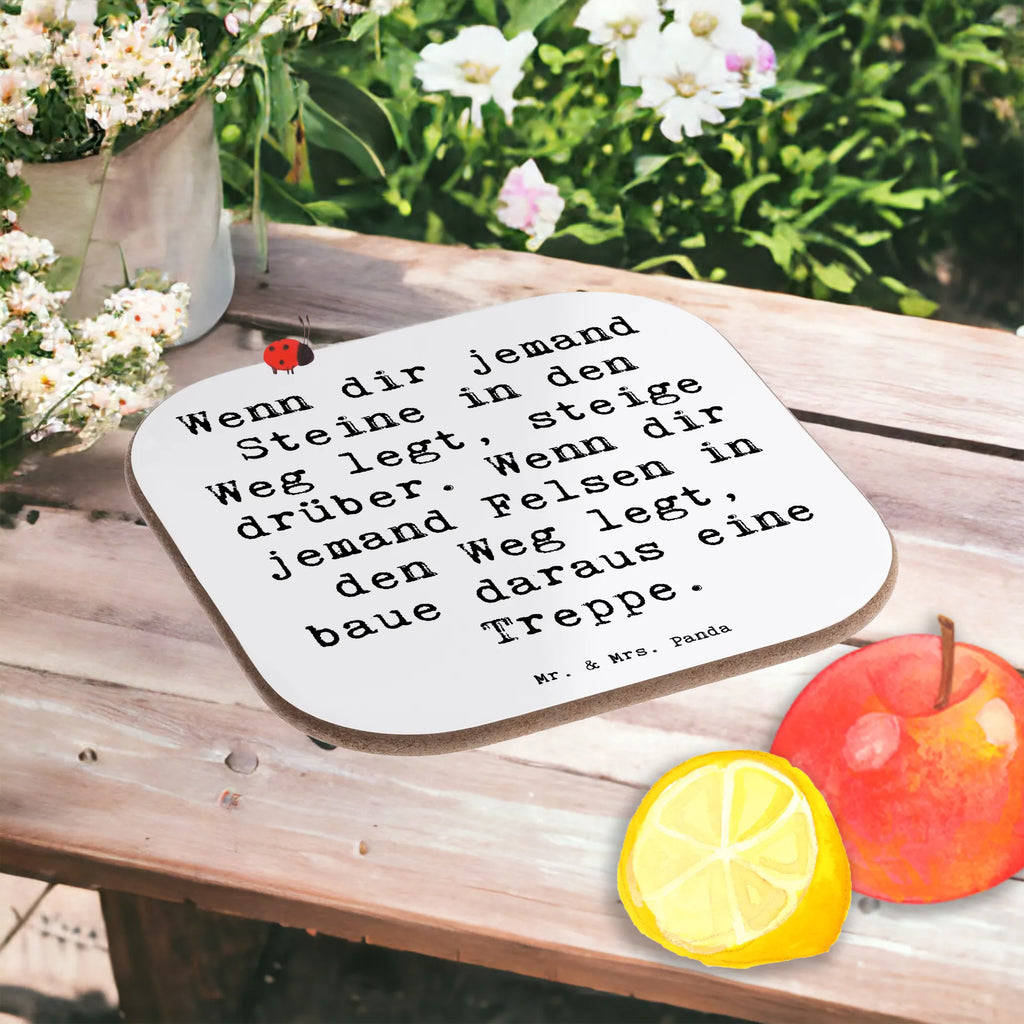 Wenn dir jemand
Steine in den
Weg legt, steige
drüber. Wenn dir
jemand Felsen in
den Weg legt,
baue daraus eine
Treppe.
Mr. & Mrs. Panda